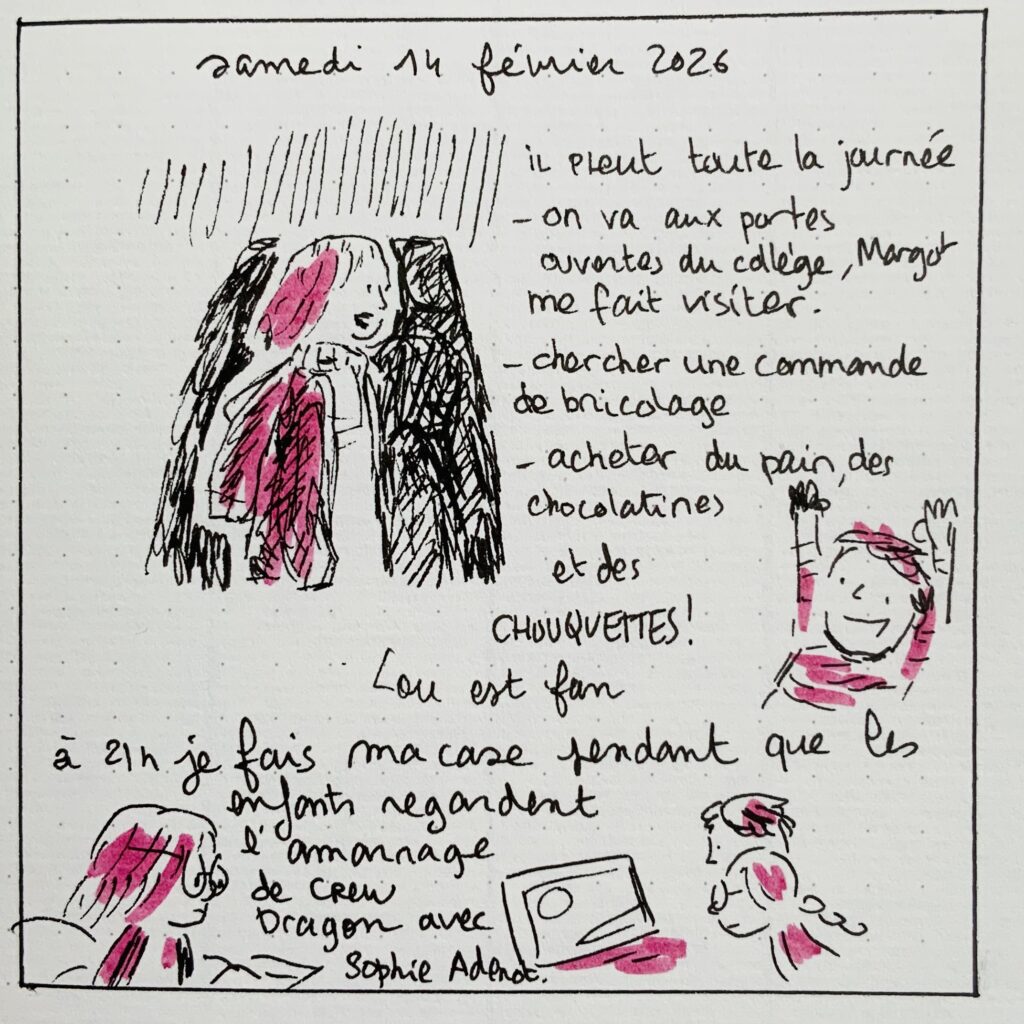 samedi 14 février 2026
il pleut toute la journée
- on va aux portes
ouvertes du collège, Margot
me fait visiter.
- chercher une commande
de bricolage
- acheter du pain, des
chocolatines
et des
CHOUQUETTES!
Lou est fan
à 21h je fais ma case pendant que les
enfants regardent
l'amarrage
de CREW
Dragon avec
Sophie Adenot.